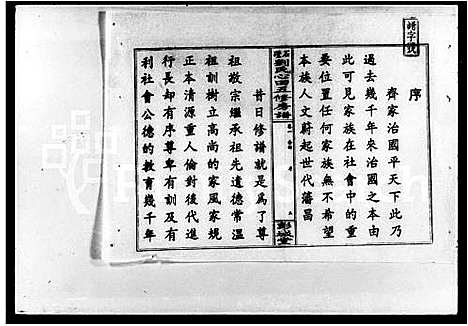 序
齊家治國平天下此乃
過去幾千年來治國之本由
此可見家族在社會中的重
要位置任何家族無不希望
本族人文蔚起世代藩昌
劉氏心田五修房譜
彭城堂
昔日修譜就是爲了尊
祖敬宗繼承祖先遺德常溫
祖訓樹立高尚的家風家規
正本清源重人倫對後代進
行長幼有序尊卑有訓及有
利社會公德的教育幾千年